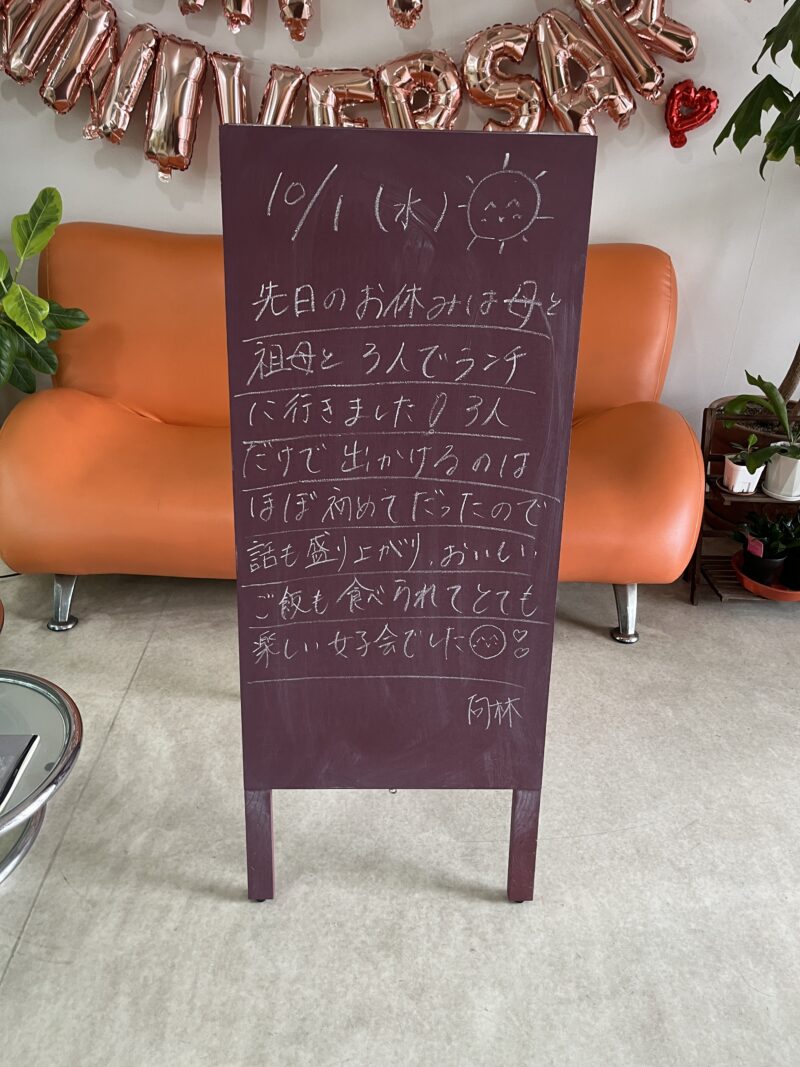 ANNIVERSARY
10/1 (水)
先日のお休みは母と
祖母と 3人でランチ
に行きました! 3人
だけで 出かけるのは
ほぼ初めてだったので
話も盛り上がり、おいしい
ご飯も食べられてとても
楽しい女子会でした
向林